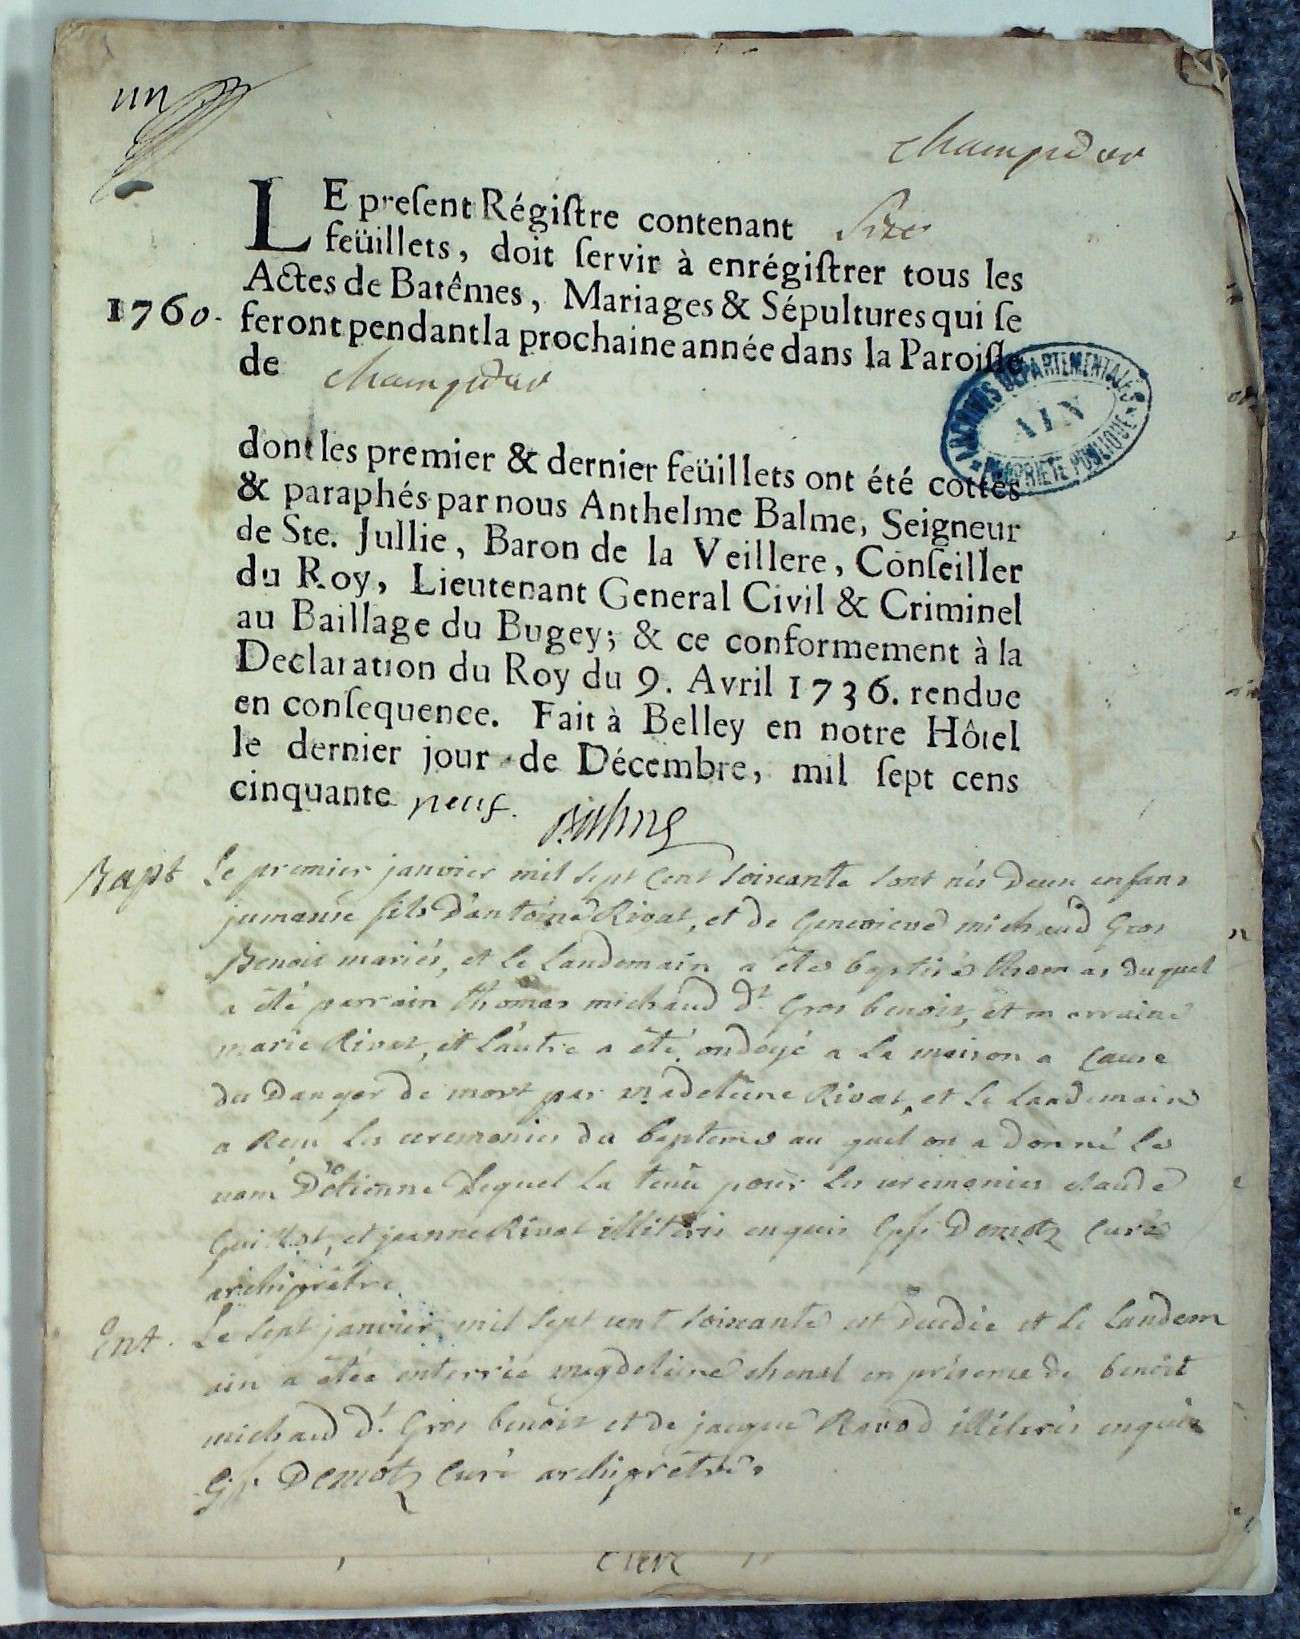 un
champdor
LE preſent Régiſtre contenant Six
feüillets, doit ſervir à enrégiſtrer tous les
Actes de Batêmes, Mariages & Sépultures qui ſe
1760. feront pendant la prochaine année dans la Paroiſſe
de champdor
ARCHIVES DÉPARTEMENTALES
AIN
PROPRIÉTÉ PUBLIQUE
dont les premier & dernier feüillets ont été cottés
& paraphés par nous Anthelme Balme, Seigneur
de Ste. Jullie, Baron de la Veillere, Conſeiller
du Roy, Lieutenant General Civil & Criminel
au Baillage du Bugey; & ce conformement à la
Declaration du Roy du 9. Avril 1736. rendue
en conſequence. Fait à Belley en notre Hôtel
le dernier jour de Décembre, mil ſept cens
cinquante neuf. Balme
Bapt Le premier janvier mil sept cent soixante sont nés deux enfans
jumaux fils d'antoine Rivat, et de Genevieve michaud Gros
Benoit mariés, et le landemain a été baptisé thomas duquel
a été parrain thomas michaud dt. Gros benoit, et marraine
marie Rivat, et l'autre a été ondoyé a la maison a cause
du danger de mort par madeleine Rivat, et le landemain
a Reçu les ceremonies du bapteme au quel on a donné le
nom d'étienne lequel la tenu pour les ceremonies claude
Guillot, et jeanne Rivat illiterés enquis Demotz curé
archiprêtre.
Ent. Le sept janvier mil sept cent soixante est decedée et le landem
ain a étée enterrée magdeleine chenel en présence de benoit
michaud dt. Gros benoit et de jacque Ravod illiterés enquis
Demotz curé archiprêtre